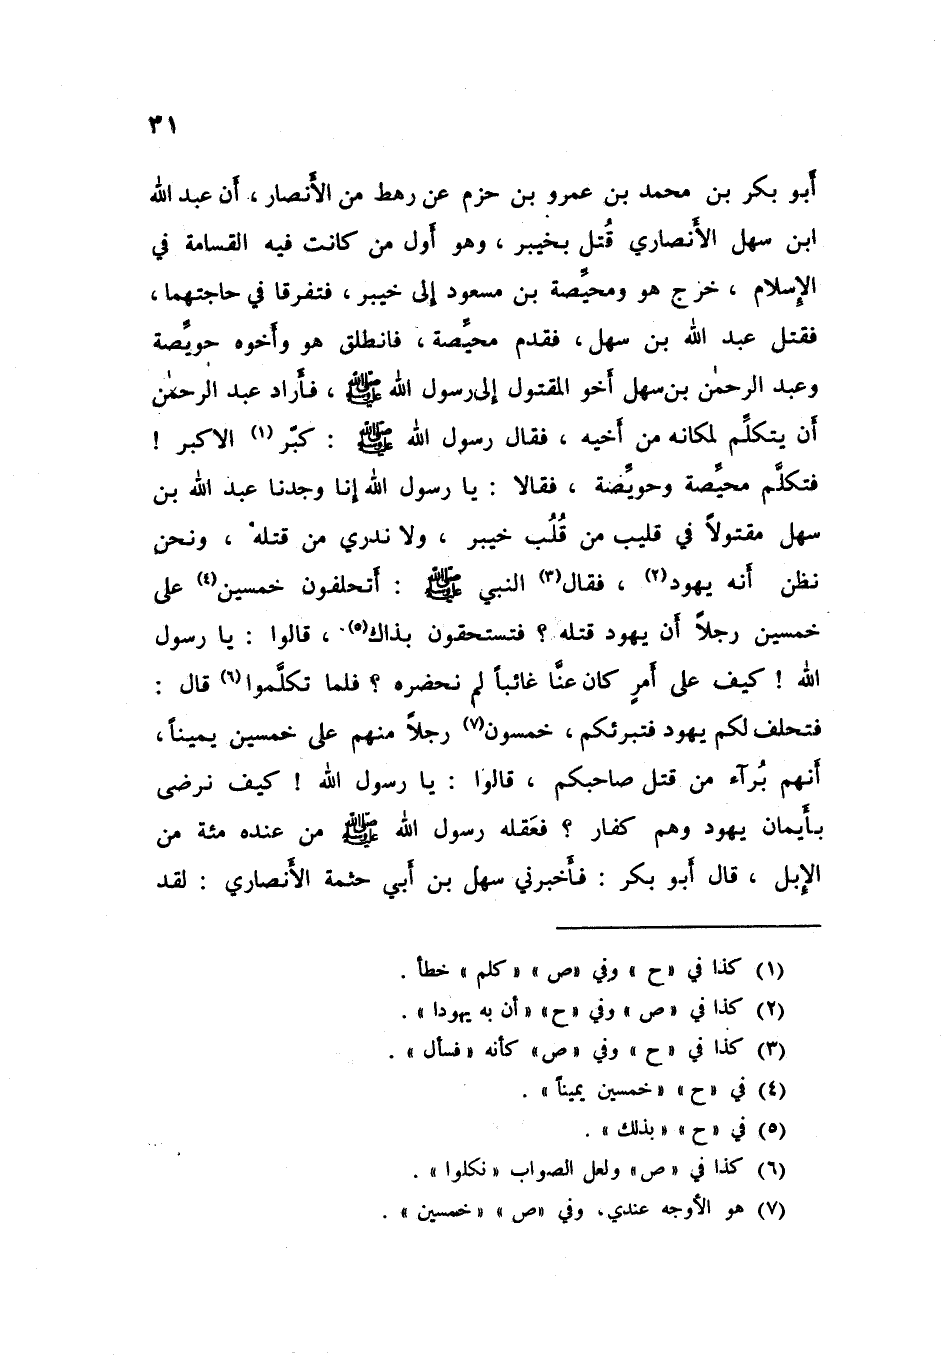 ٣١
أَبو بكر بن محمد بن عمرو بن حزم عن رهط من الأَنصار ، أَن عبد الله
ابن سهل الأَنصاري قُتل بخيبر ، وهو أَول من كانت فيه القسامة في
الإِسلام ، خرج هو ومحيِّصة بن مسعود إِلى خيبر ، فتفرقا في حاجتهما ،
فقتل عبد الله بن سهل ، فقدم محيِّصة ، فانطلق هو وأَخوه حويِّصة
وعبد الرحمٰن بن سهل أَخو المقتول إلى رسول الله ﷺ ، فأَراد عبد الرحمٰن
أَن يتكلَّم لمكانه من أَخيه ، فقال رسول الله ﷺ : كبّر (١) الاكبر !
فتكلَّم محيِّصة وحويِّصة ، فقالا : يا رسول الله إِنا وجدنا عبد الله بن
سهل مقتولاً في قليب من قُلُب خيبر ، ولا ندري من قتله ، ونحن
نظن أَنه يهود (٢) ، فقال (٣) النبي ﷺ : أَتحلفون خمسين (٤) على
خمسين رجلاً أَن يهود قتله ؟ فتستحقون بذاك (٥) ، قالوا : يا رسول
الله ! كيف على أَمرٍ كان عنَّا غائباً لم نحضره ؟ فلما تكلَّموا (٦) قال :
فتحلف لكم يهود فتبرئكم ، خمسون (٧) رجلاً منهم على خمسين يميناً ،
أَنهم بُرآء من قتل صاحبكم ، قالوا : يا رسول الله ! كيف نرضى
بأَيمان يهود وهم كفار ؟ فعَقله رسول الله ﷺ من عنده مئة من
الإِبل ، قال أَبو بكر : فأَخبرني سهل بن أَبي حثمة الأَنصاري : لقد
(١) كذا في « ح » وفي «ص» « كلم » خطأ .
(٢) كذا في « ص » وفي « ح» « أن به يهودا » .
(٣) كذا في « ح » وفي « ص» كأنه « فسأل » .
(٤) في « ح » « خمسين يميناً » .
(٥) في « ح » « بذلك » .
(٦) كذا في « ص» ولعل الصواب « نكلوا » .
(٧) هو الأوجه عندي، وفي «ص » « خمسين » .